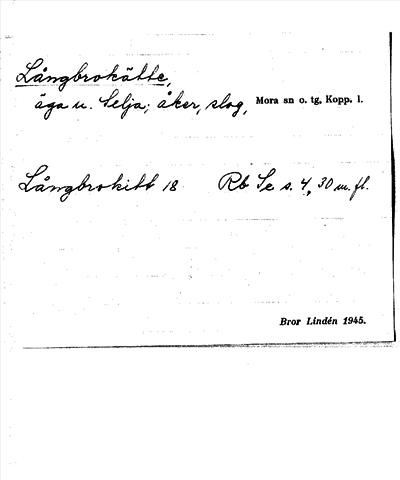 Långbrokätte,
äga u. Selja; åker, slog, Mora sn o. tg, Kopp. l.
Långbrokitt 18 Rb Se s. 4, 30 m. fl.
Bror Lindén 1945.